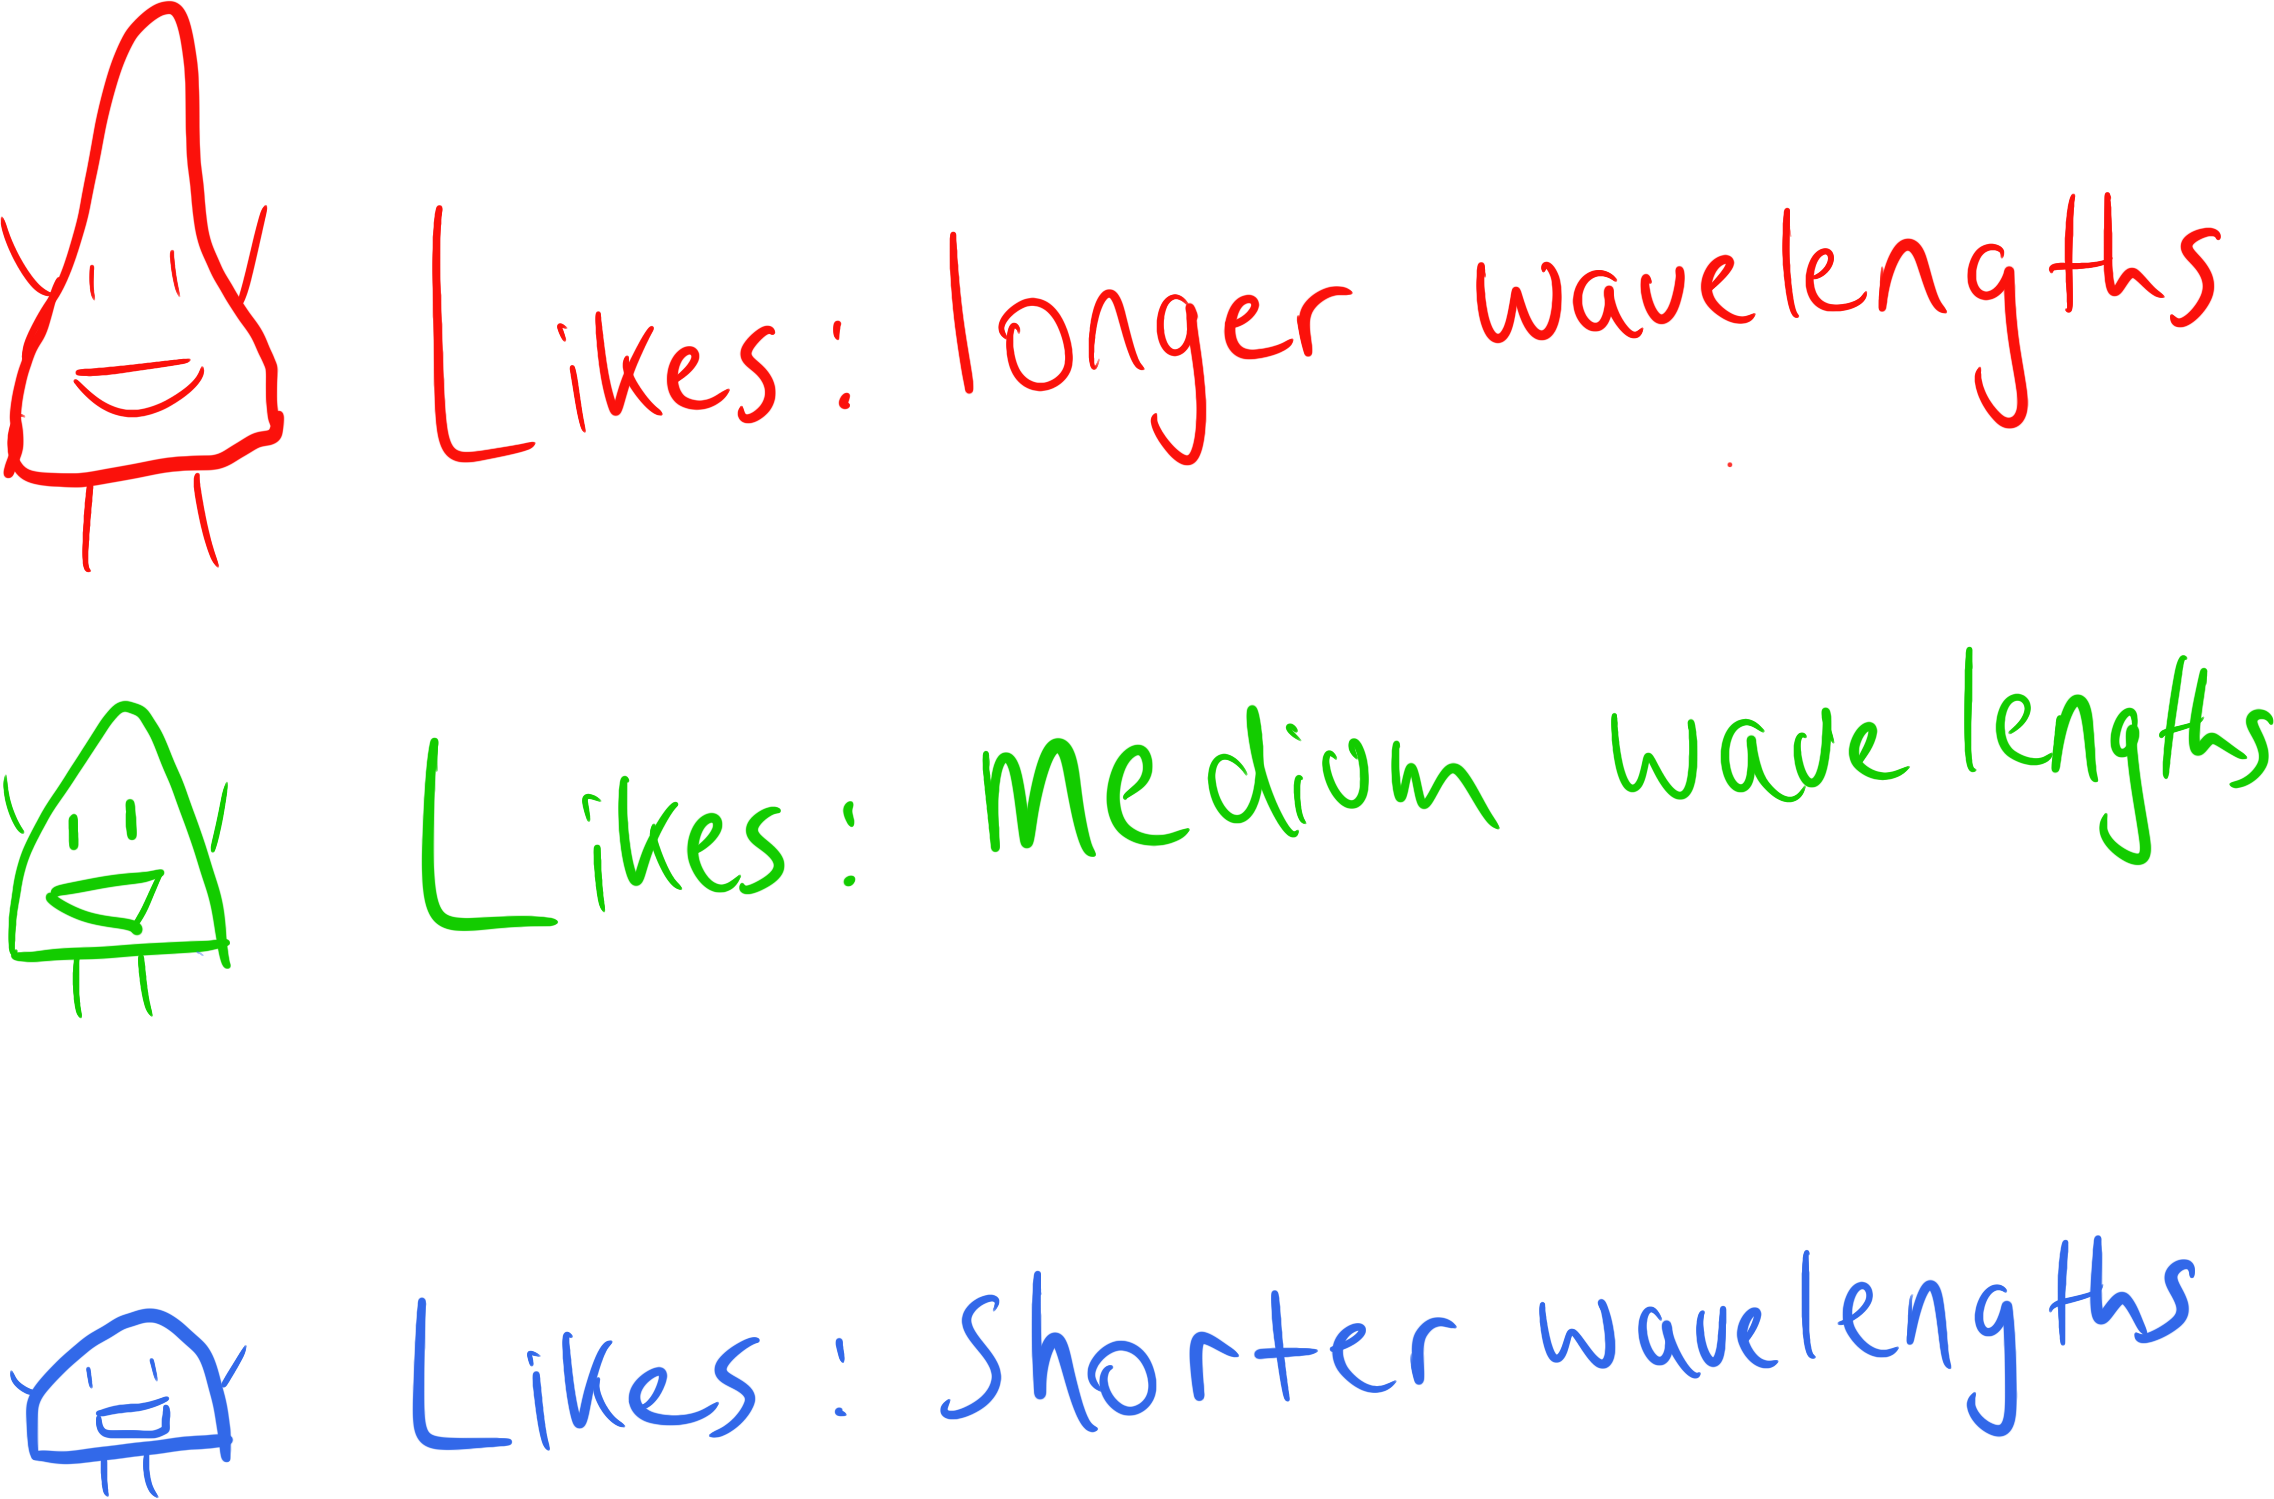 Likes: longer wavelengths
Likes: Mediom wavelengths
Likes: Shorter wavelengths